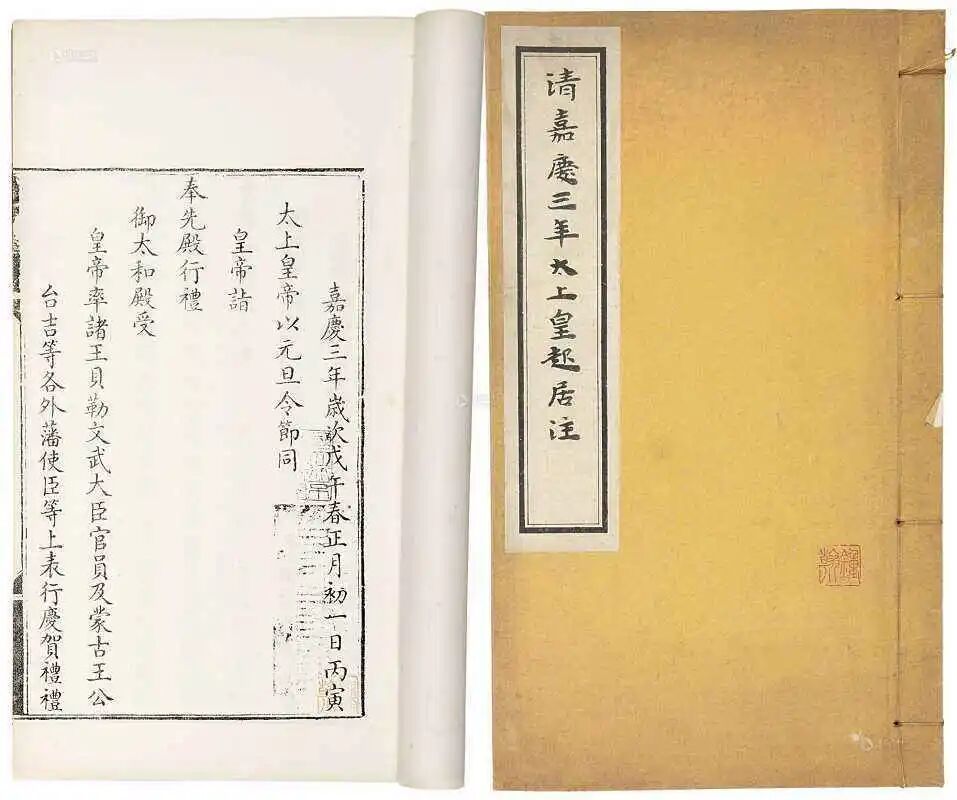 清嘉慶三年太上皇起居注
嘉慶三年歲次戊午春正月初一日丙寅
太上皇帝以元旦令節同
皇帝詣
奉先殿行禮
御太和殿受
皇帝率諸王貝勒文武大臣官員及蒙古王公
台吉等各外藩使臣等上表行慶賀禮禮